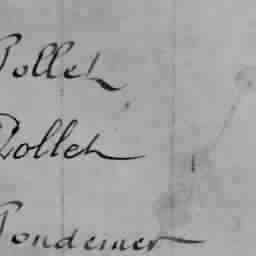 Pollet
Pollet
Pondemer